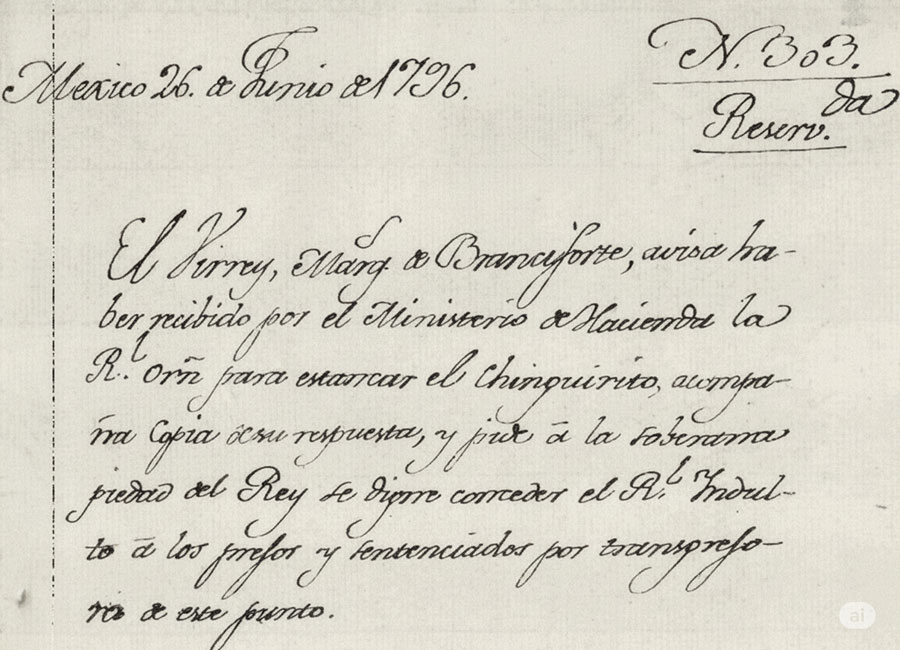 Mexico 26. de Junio de 1796.
N. 303.
Reserv.da
El Virrey, Marq.s de Branciforte, avisa ha-
ber recibido por el Ministerio de Hacienda la
R.l orñ para estancar el Chinguirito, acompa-
ña Copia de su respuesta, y pide á la soberana
piedad del Rey se digne conceder el R.l Indul-
to á los presos y sentenciados por transgreso-
res de este punto.
ai